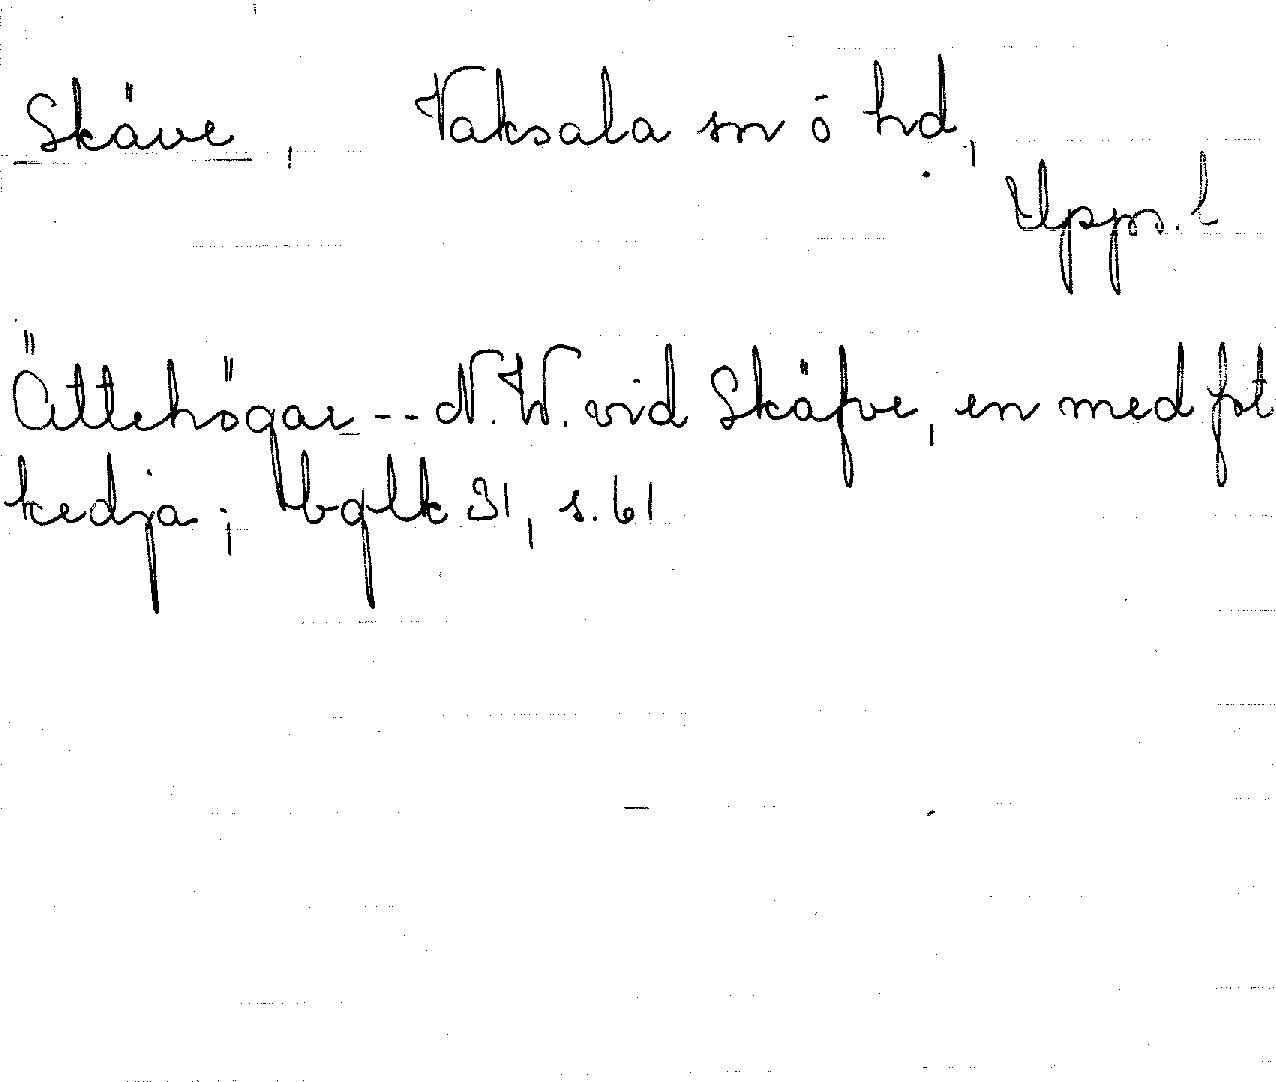 Skäve, Vaksala sn o hd,
Upps. l
Ättehögar -- N.W. vid Skäfve, en med fot
kedja; bglk 31, s. 61